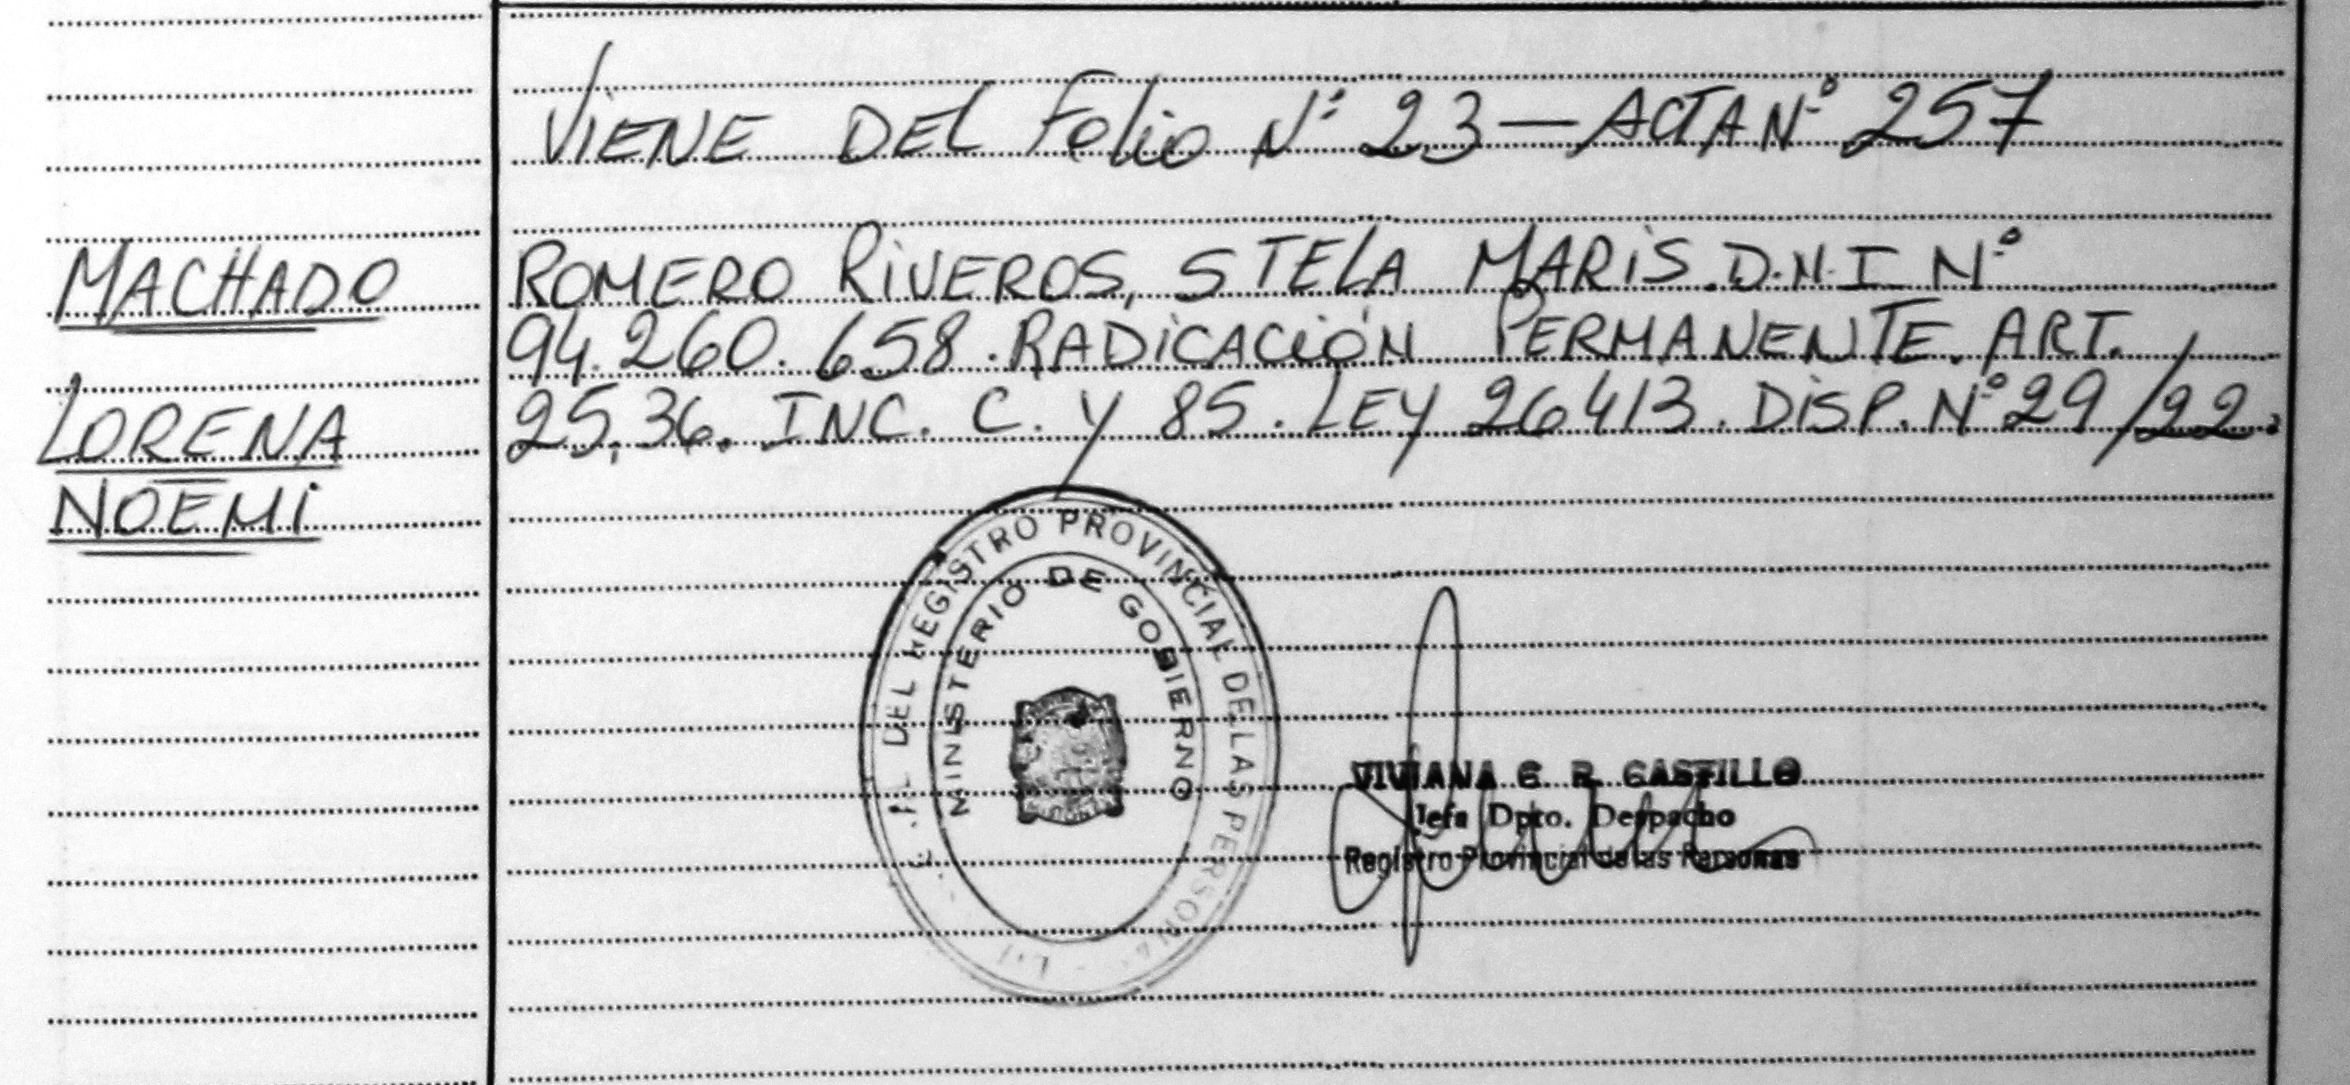 VIENE DEL Folio Nº 23 — ACTA Nº 257
MACHADO
LORENA
NOEMI
ROMERO RIVEROS, STELA MARIS. D.N.I Nº
94.260.658. RADICACIÓN PERMANENTE. ART.
25, 36. INC. C. Y 85. LEY 26413. DISP. Nº 29/22.
DEL REGISTRO PROVINCIAL DE LAS PERSONAS
MINISTERIO DE GOBIERNO
VIVIANA C. R. CASTILLO
Jefa Dpto. Despacho
Registro Provincial de las Personas